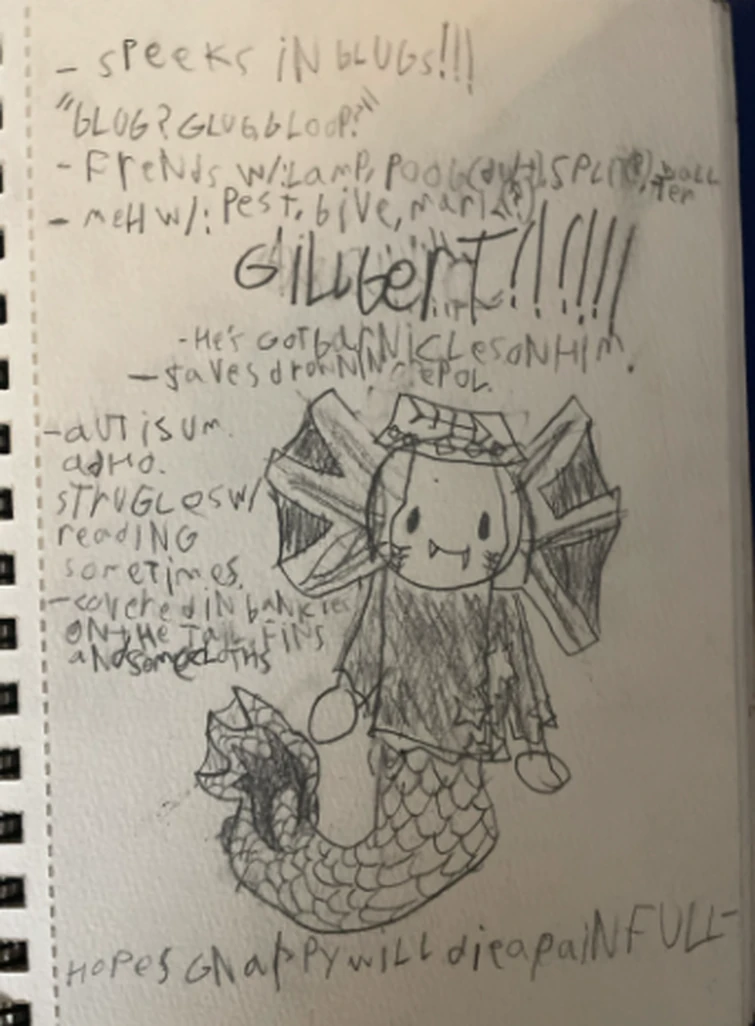 - SPEEKS iN bLUGS!!!
"bLUG? GLUG, bLOOP?"
- FreNds w/: LaMP, POOL (duh), SPLi(?), baLL
Ten
- meH w/: Pest, bive, mari(?)
GiLLberT!!!!!!
- He's GOT barNicLes oN HiM.
- saves drowNiNG
- aUTisUm.
adHD.
STrUGLes w/
readiNG
someTimes.
- covered iN
ON THe TaiL, FiNS
aNd some cLoTHs
HoPes GNaPPy wiLL die a paiNFULL-